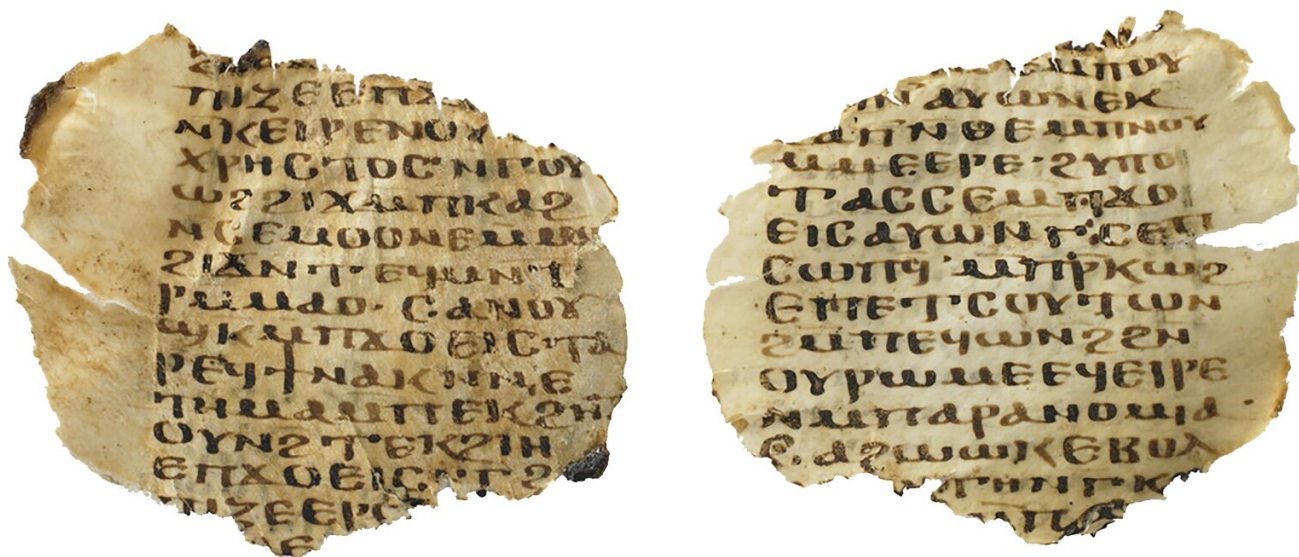 ⲡⲓⲍⲉⲉⲡϫ
ⲛⲕⲉⲓⲣⲉⲛⲟⲩ
ⲭⲣⲏⲥⲧⲟⲥ·ⲛⲅⲟⲩ
ⲱϩϩⲓϫⲙⲡⲕⲁϩ
ⲛⲥⲉⲙⲟⲟⲛⲉⲙⲙⲟ
ϩⲓϫⲛⲧⲉϥⲙⲛⲧ
ⲣⲙⲙⲁⲟ·ⲥⲁⲛⲟⲩ
ϣⲕⲙⲡϫⲟⲉⲓⲥ·ⲧⲁ
ⲣⲉϥϯⲛⲁⲕⲛⲛⲉ
ⲧⲏⲙⲁⲙⲡⲉⲕϩⲏⲧ
ⲟⲩⲛϩⲧⲉⲕϩⲓⲏ
ⲉⲡϫⲟⲉⲓⲥ·ⲛⲅϩ
ⲡⲓⲍⲉⲉⲣⲟ
ⲙⲡⲟⲩ
ⲁⲩⲱⲛⲉⲕ
ϩⲁⲡⲛⲑⲉⲙⲡⲛⲟⲩ
ⲙⲙⲉⲉⲣⲉ·ϩⲩⲡⲟ
ⲧⲁⲥⲥⲉⲙⲡϫⲟ
ⲉⲓⲥⲁⲩⲱⲛⲅⲥⲉⲡ
ⲥⲱⲡϥ·ⲙⲡⲣⲕⲱϩ
ⲉⲡⲉⲧⲥⲟⲩⲧⲱⲛ
ϩⲙⲡⲉϥⲱⲛϩϩⲛ
ⲟⲩⲣⲱⲙⲉⲉϥⲉⲓⲣⲉ
ⲛⲙⲡⲁⲣⲁⲛⲟⲙⲓⲁ·
ϭⲁϩⲱⲱⲕⲉⲃⲟⲗ
ⲧⲏⲛⲅⲕ